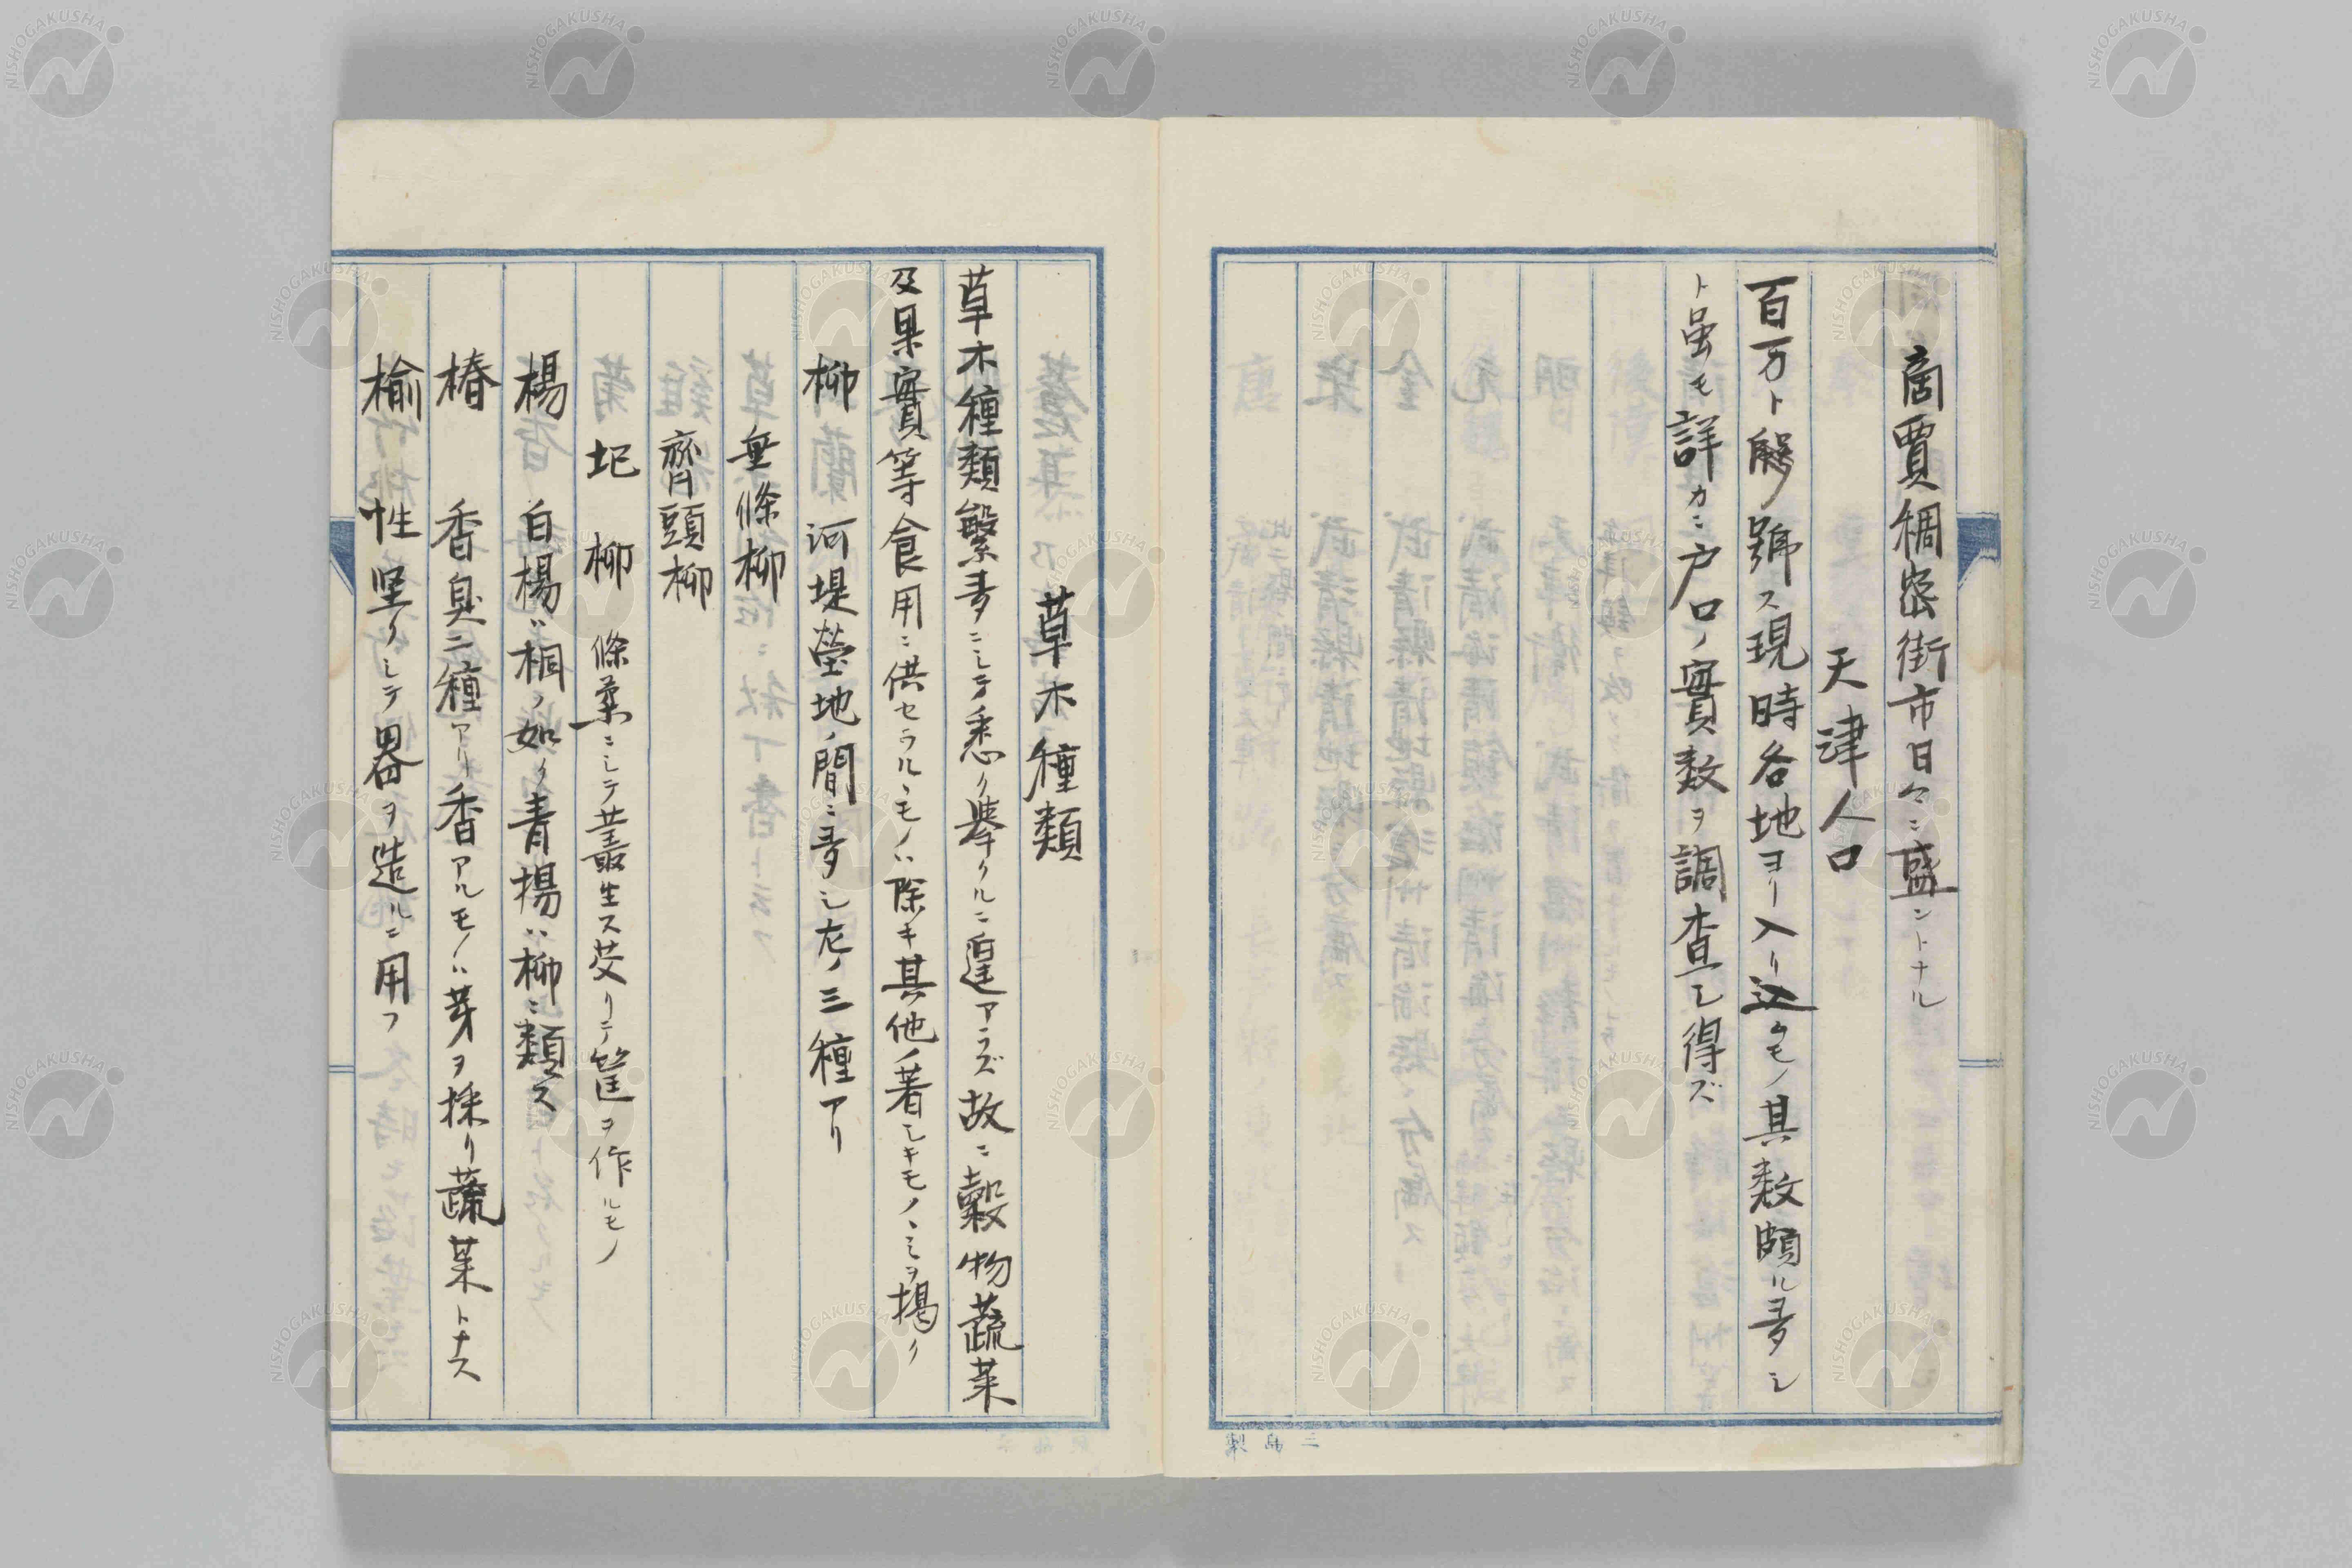 商賈稠密街市日々ニ盛ントナル
天津人口
百万ト號ス現時各地ヨリ入リ込ムモノ其数頗ル多シ
ト虽モ詳カニ户口ノ實数ヲ調査シ得ズ
草木種類
草木種類繁多ニシテ悉ク擧クルニ遑アラズ故ニ穀物蔬菜
及果實等食用ニ供セラルヽモノハ除キ其他ノ著シキモノヽミヲ掲ク
柳 河堤塋地ノ間ニ多シ左ノ三種アリ
垂條柳
齊頭柳
杞柳 條葉ニシテ叢生ス芟リテ筐ヲ作ルモノ
楊 白楊ハ桐ノ如ク青楊ハ柳ニ類ス
椿 香臭二種アリ香アルモノハ芽ヲ採リ蔬菜トナス
楡 性坚クシテ器ヲ造ルニ用フ
NISHOGAKUSHA